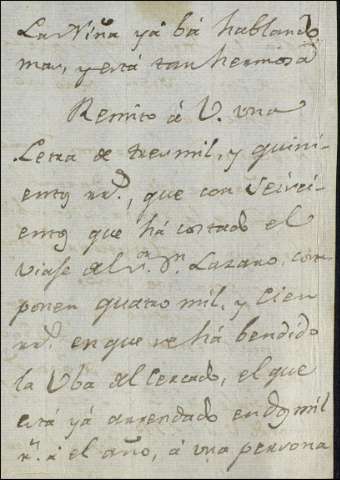 La Niña yá bá hablando
mas, y está tan hermosa
Remito á V. una
Letra de tres mil, y quini-
entos rr.s, que con seisci-
entos que há costado el
viaje del s.r D.n Lazaro, com-
ponen quatro mil, y Cien
rr.s en que se há bendido
la Uba del Cercado, el que
está yá arrendado en dos mil
r.s el año, á una persona